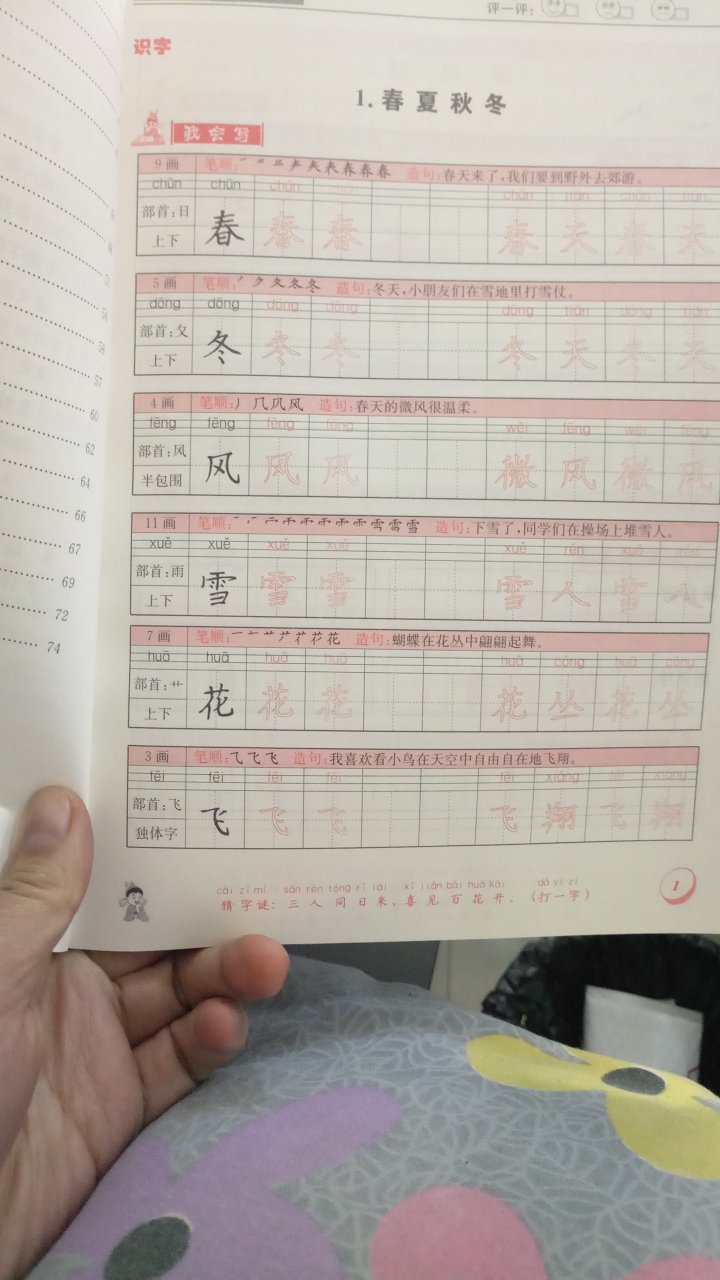 评一评：
识字
1. 春 夏 秋 冬
我会写
9 画 笔顺： 造句：春天来了，我们要到野外去郊游。
chūn chūn chūn chūn tiān chūn tiān
部首：日 春 春 春 春 天 春 天
上下
5 画 笔顺： 造句：冬天，小朋友们在雪地里打雪仗。
dōng dōng dōng dōng dōng tiān dōng tiān
部首：夂 冬 冬 冬 冬 天 冬 天
上下
4 画 笔顺： 造句：春天的微风很温柔。
fēng fēng fēng fēng wēi fēng wēi fēng
部首：风 风 风 风 微 风 微 风
半包围
11 画 笔顺： 造句：下雪了，同学们在操场上堆雪人。
xuě xuě xuě xuě xuě rén xuě rén
部首：雨 雪 雪 雪 雪 人 雪 人
上下
7 画 笔顺： 造句：蝴蝶在花丛中翩翩起舞。
huā huā huā huā huā cóng huā cóng
部首：艹 花 花 花 花 丛 花 丛
上下
3 画 笔顺： 造句：我喜欢看小鸟在天空中自由自在地飞翔。
fēi fēi fēi fēi fēi xiáng fēi xiáng
部首：飞 飞 飞 飞 飞 翔 飞 翔
独体字
cāi zì mí sān rén tóng rì lái xǐ jiàn bǎi huā kāi dǎ yí zì
猜字谜：三人同日来，喜见百花开。（打一字）
1
56
57
60
62
64
66
67
69
72
74